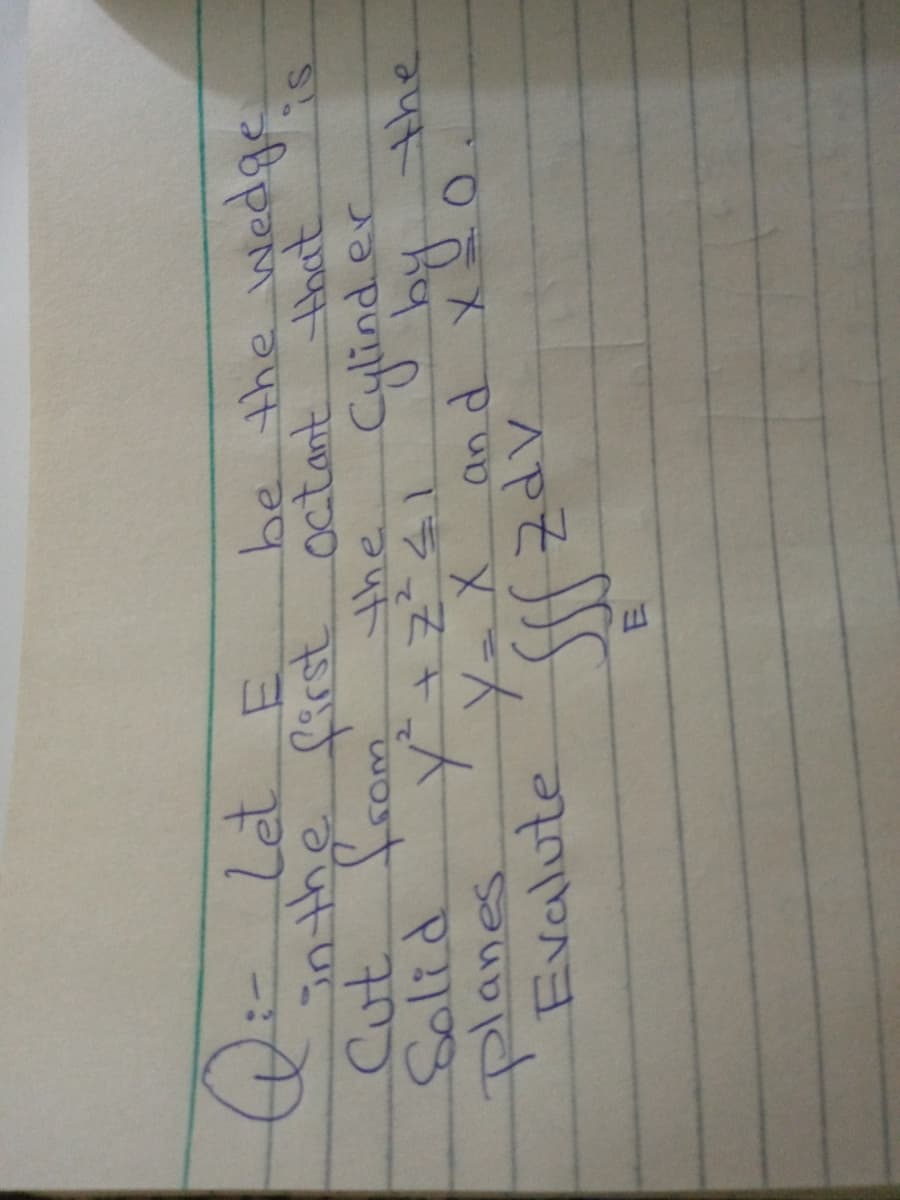 Q:- Let E be the wedge
in the first octant that is
Cut from the Cylinder
Solid y² + z² ≤ 1 by the
planes y = x and x = 0.
Evalute ∭ z dv
E